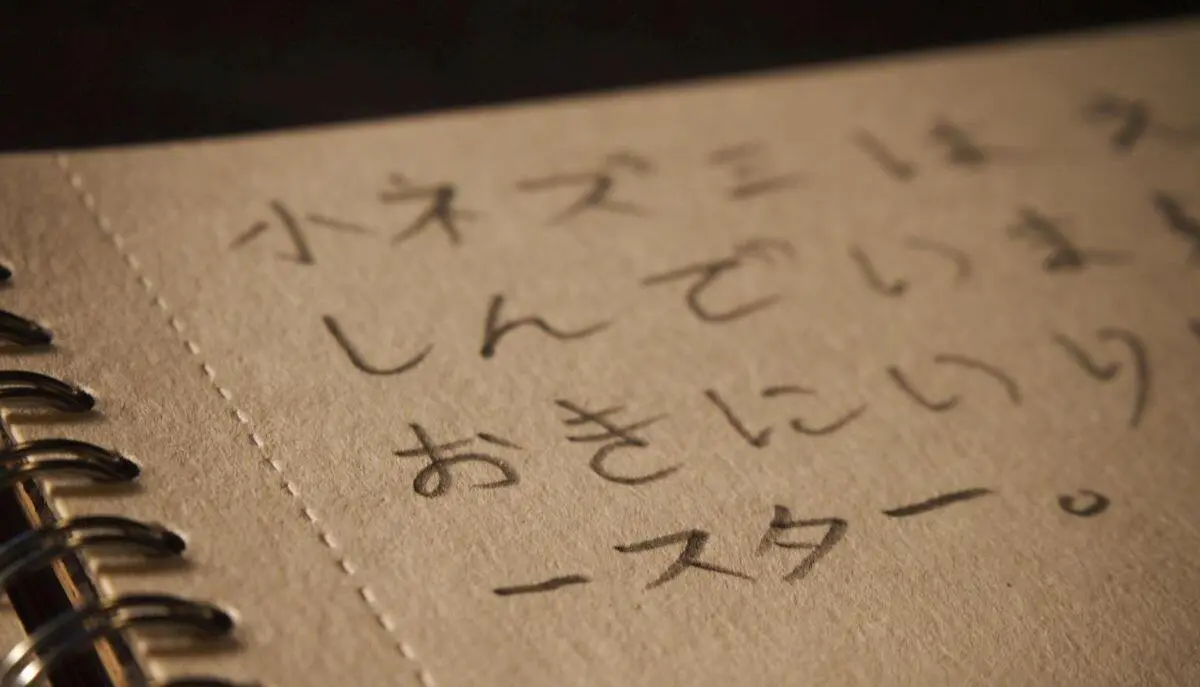 小ネズミは
しんでいま
おきにいり
ースター。